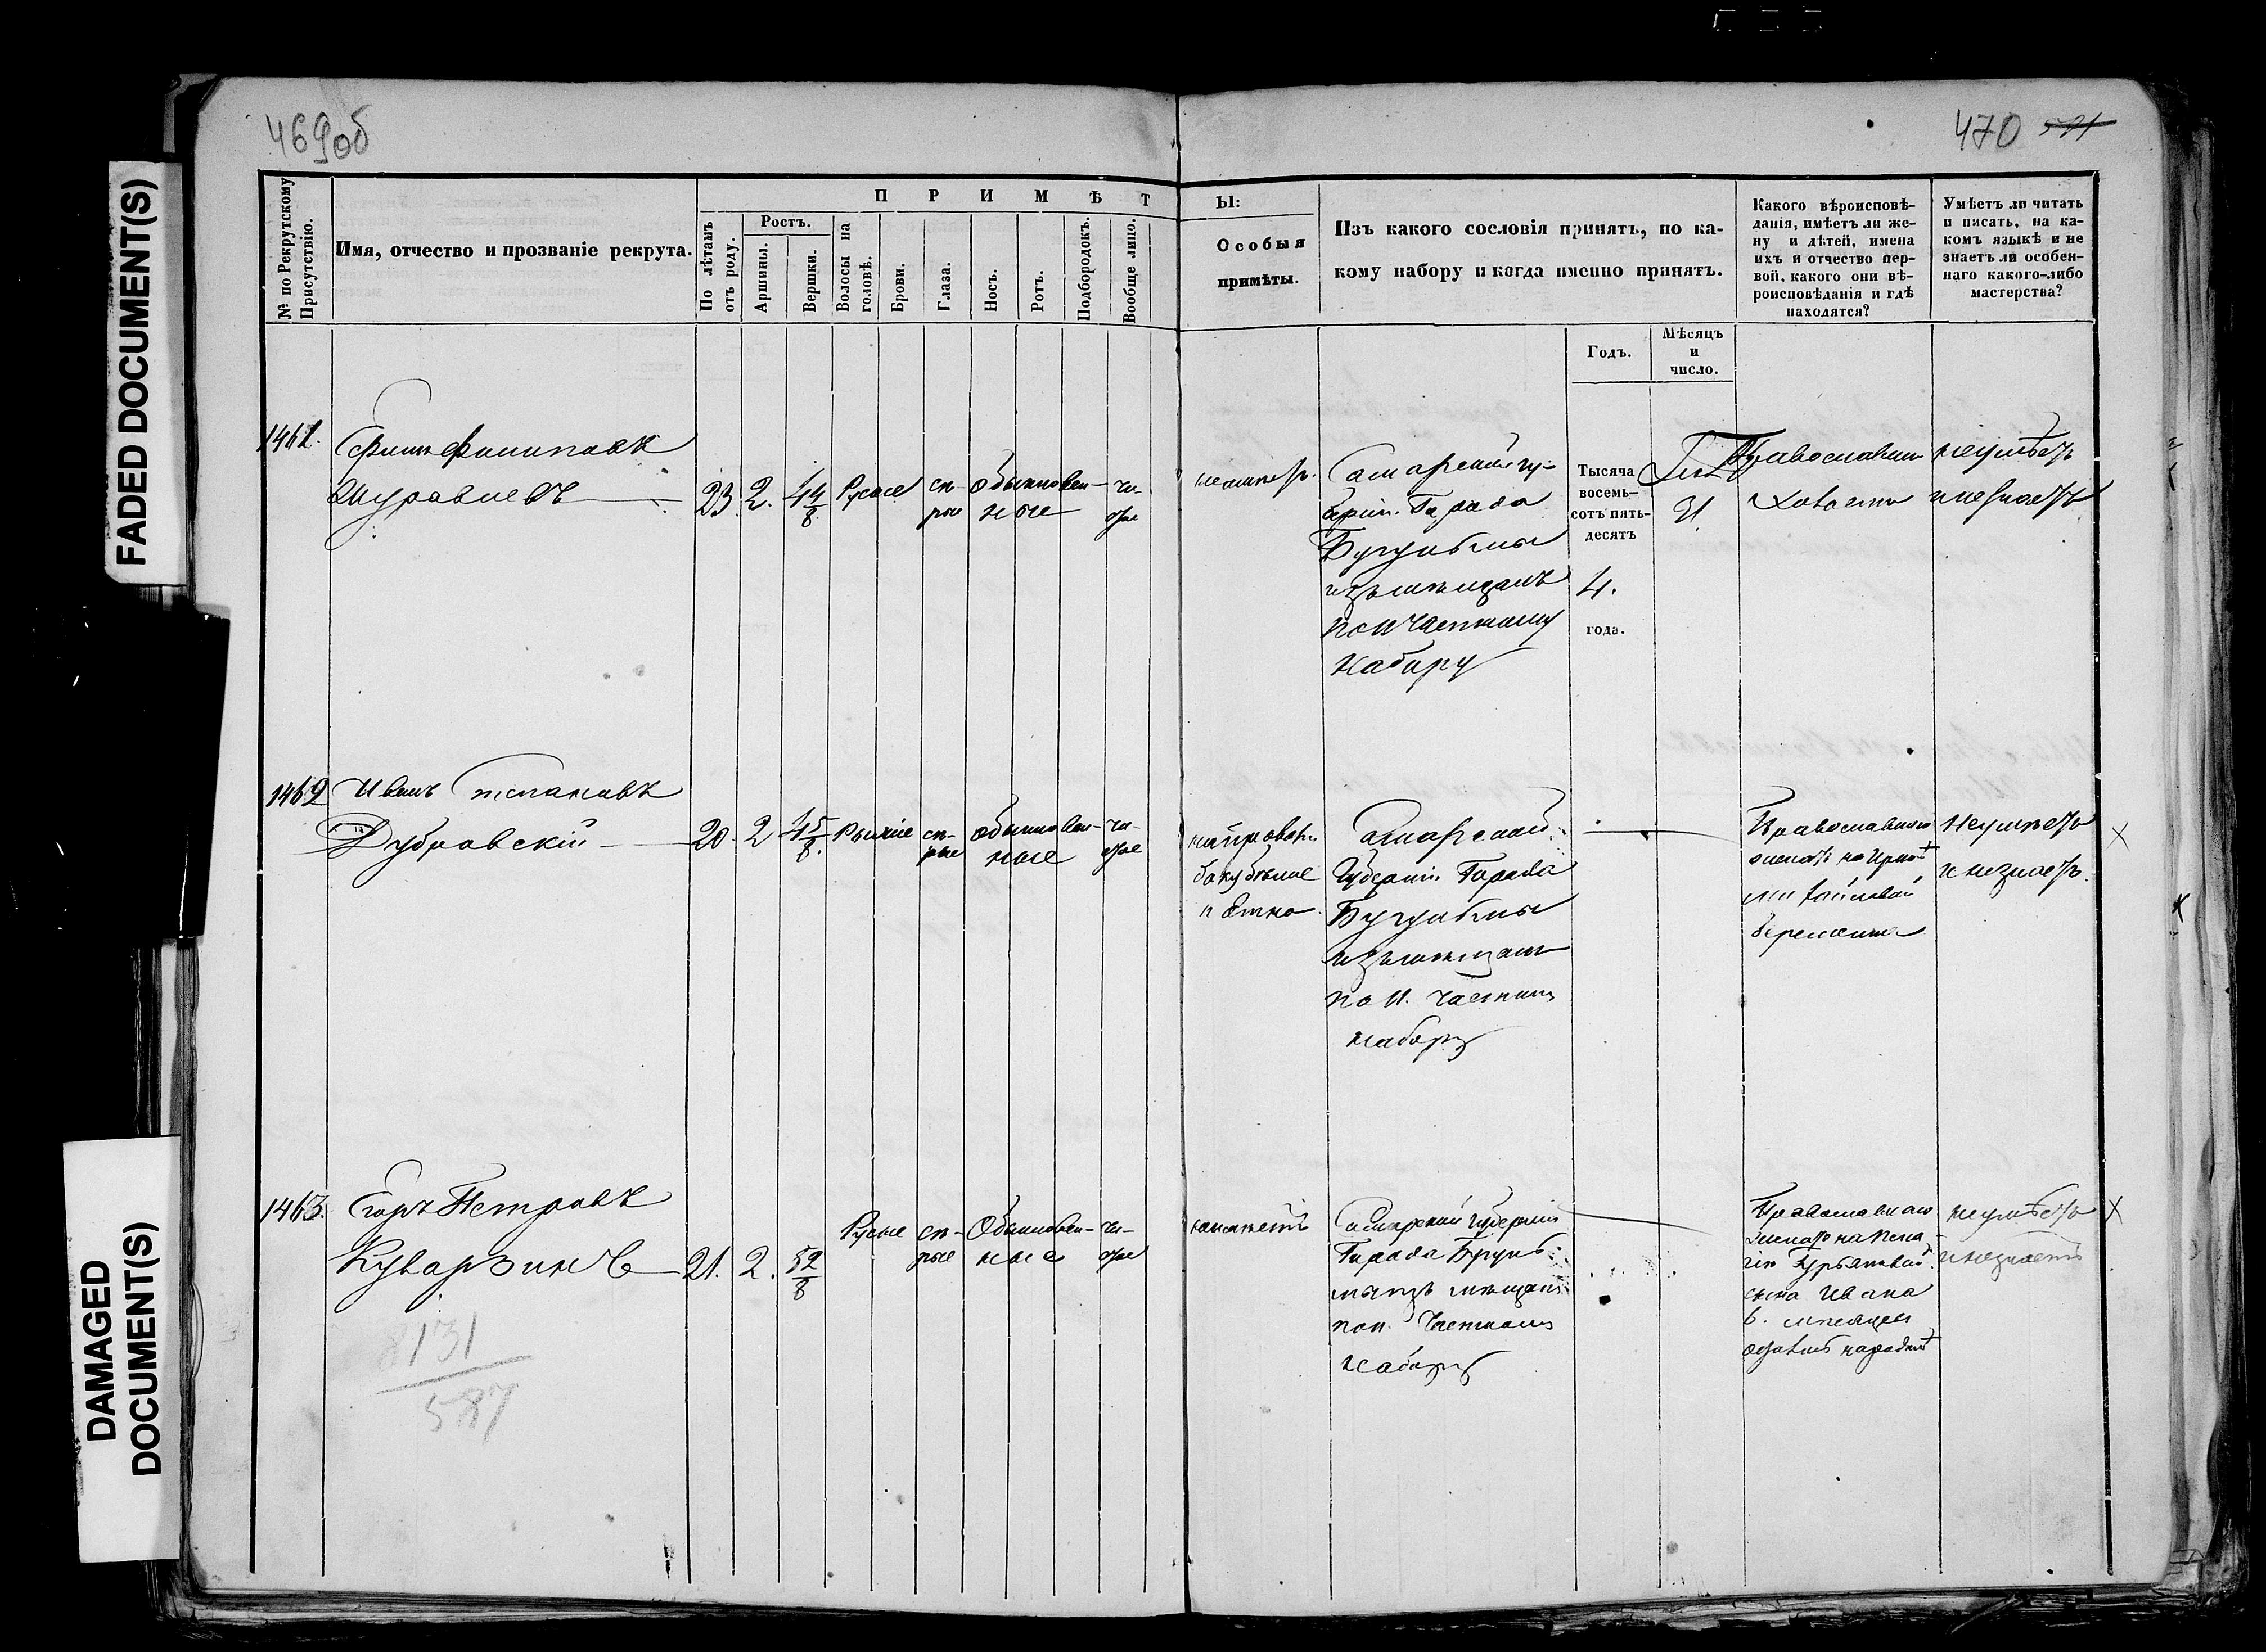 469об
470 521
FADED DOCUMENT(S)
DAMAGED
DOCUMENT(S)
№ по Рекрутскому
Присутствію.
Имя, отчество и прозваніе рекрута.
ПРИМѢТЫ:
По лѣтамъ
отъ роду.
Ростъ.
Аршины.
Вершки.
Волосы на
головѣ.
Брови.
Глаза.
Носъ.
Ротъ.
Подбородокъ.
Вообще лицо.
Особыя
примѣты.
Изъ какого сословія принятъ, по ка-
кому набору и когда именно принятъ.
Годъ.
Мѣсяцъ
и
число.
Какого вѣроисповѣ-
данія, имѣетъ ли же-
ну и дѣтей, имена
ихъ и отчество пер-
вой, какого они вѣ-
роисповѣданія и гдѣ
находятся?
Умѣетъ ли читать
и писать, на ка-
комъ языкѣ и не
знаетъ ли особен-
наго какого-либо
мастерства?
1461.
Филиповъ
Журавлевъ
23. 2. 4 4/8
Русые
сѣ-
рые
обыкновен-
ные
чи-
стое
неимѣетъ.
Самарской гу-
берніи. Города
Бугульмы
изъ мѣщанъ
по II частному
набору
Тысяча
восемь-
сотъ пять-
десятъ
4.
года.
21
Православнаго
Холостъ
неумѣетъ
и незнаетъ
1462
Иванъ Степановъ
Дубровскій
20. 2 4 5/8.
Рыжіе
сѣ-
рые
обыкновен-
ные
чи-
стое
Самарской
Губерніи. Города
Бугульмы
изъ мѣщанъ
по II. частному
набору
Православнаго
женатъ на
беременна
Неумѣетъ
и незнаетъ.
1463.
Егоръ Петровъ
Куварзинъ
21. 2. 5 2/8
Русые
сѣ-
рые
Обыкновен-
ные
чи-
стое
неимѣетъ
Самарской губерніи
Города Бугуль-
мы изъ мѣщанъ
по II. Частному
набору
Православнаго
женатъ на Пела-
гіи
сына Ивана
6. мѣсяцевъ
неумѣетъ
и незнаетъ
131
587